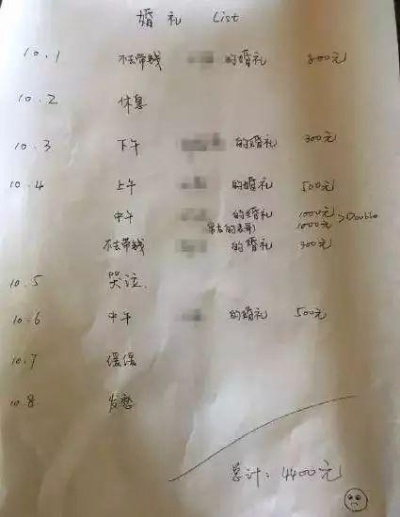 婚礼 List
10.1 不去带钱 的婚礼 800元
10.2 休息
10.3 下午 的婚礼 300元
10.4 上午 的婚礼 500元
中午 的婚礼 1000元 >Double
1000元
不去带钱 的婚礼 300元
10.5 哭泣
10.6 中午 的婚礼 500元
10.7 缓缓
10.8 发
总计: 4400元